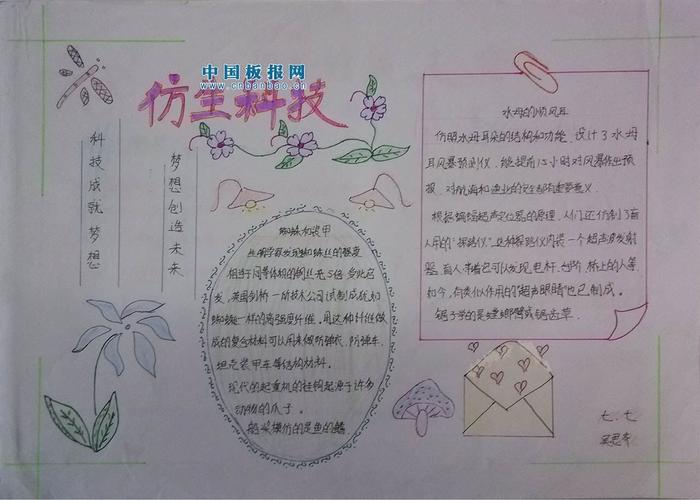 中国板报网
www.cnbanbao.cn
仿生科技
科技成就梦想
梦想创造未来
蜘蛛和装甲
生物学家发现蜘蛛丝的强度
相当于同等体积的钢丝的5倍。受此启
发，英国剑桥一所技术公司试制成犹如
蜘蛛丝一样的高强度纤维。用这种纤维做
成的复合材料可以用来做防弹衣、防弹车、
坦克装甲车等结构材料。
现代的起重机的挂钩起源于许多
动物的爪子。
船桨模仿的是鱼的鳍
水母的顺风耳
仿照水母耳朵的结构和功能，设计了水母
耳风暴预测仪，能提前15小时对风暴作出预
报，对航海和渔业的安全都有重要意义。
根据蝙蝠超声定位器的原理，人们还仿制了盲
人用的"探路仪"。这种探路仪内装一个超声波发射
器，盲人带着它可以发现电杆、台阶、桥上的人等。
如今，有类似作用的"超声眼镜"也已制成。
锯子学的是螳螂臂或锯齿草。
七、七